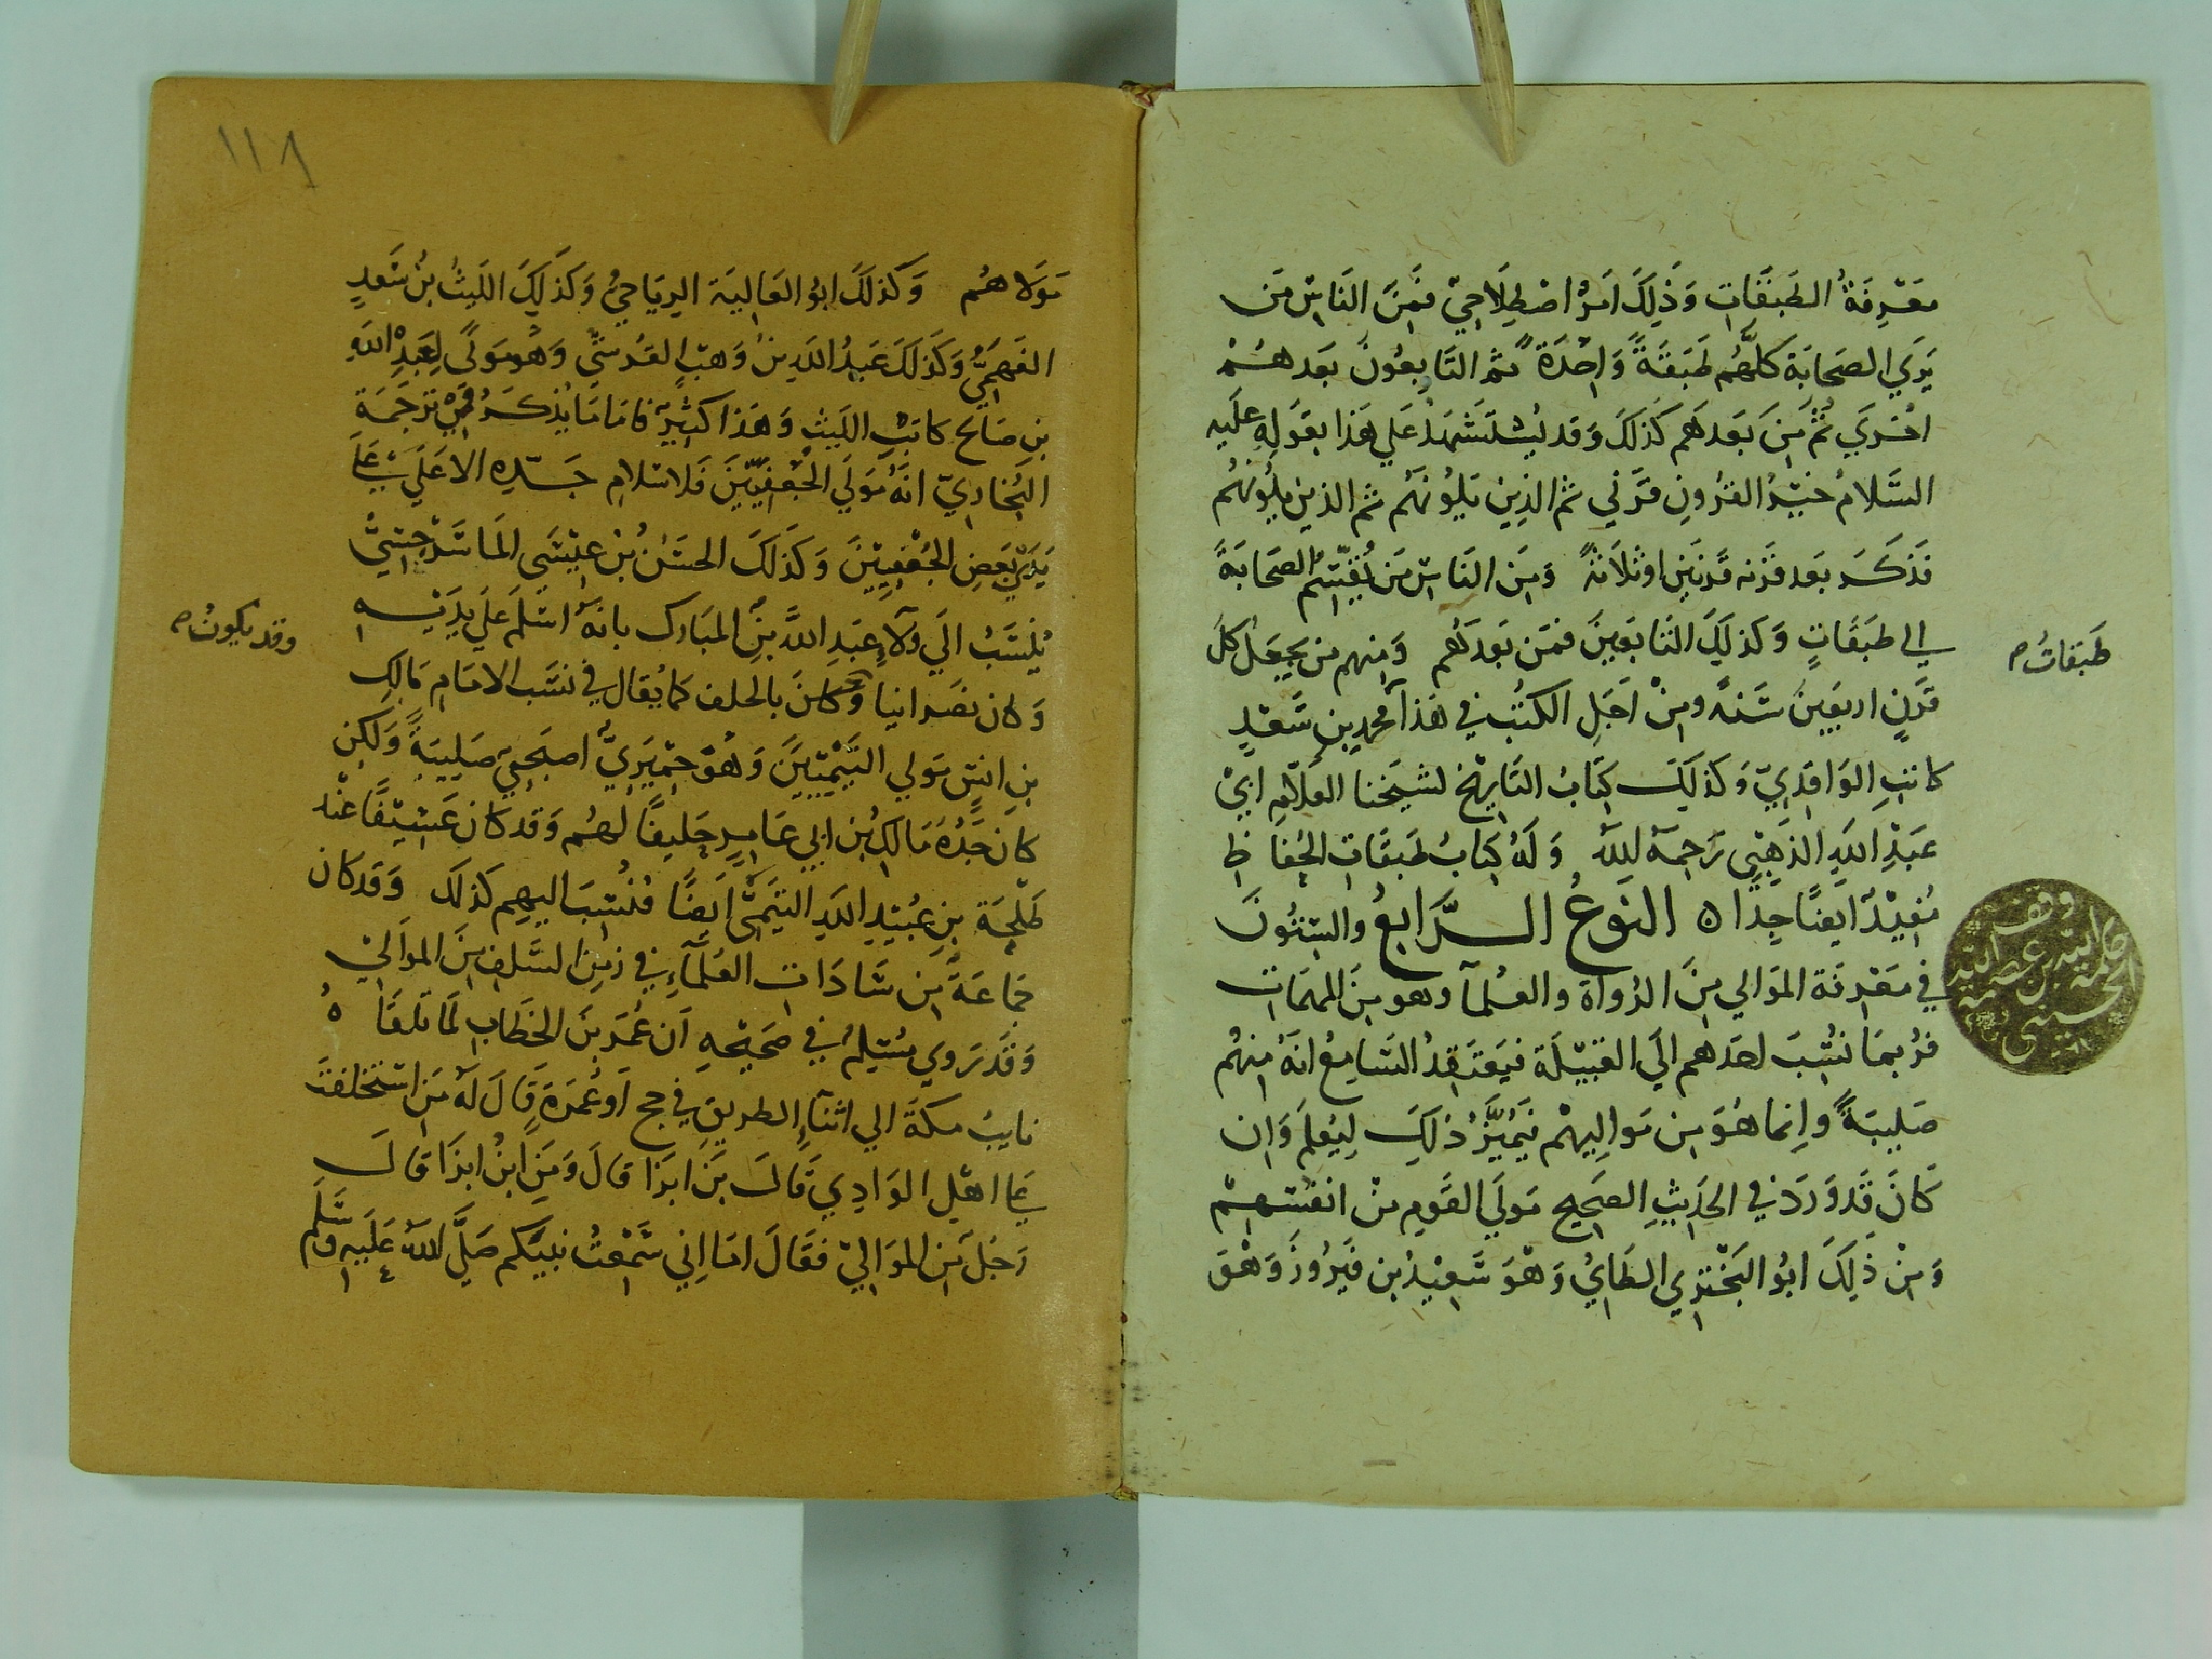 معرفة الطبقات وذلك امر اصطلاحي فمن الناس من
يري الصحابة كلهم طبقة واحدة ثم التابعون بعدهم
اخري ثم من بعدهم كذلك وقد يستشهد علي هذا بقوله عليه
السلام خير القرون قرني ثم الذين يلونهم ثم الذين يلونهم
فذكر بعد قرنه قرنين او ثلاثة ومن الناس من يقسم الصحابة
الي طبقات وكذلك التابعين فمن بعدهم ومنهم من يجعل كل
طبقات
قرن اربعين سنة ومن اجل الكتب في هذا محمد بن سعد
كاتب الواقدي وكذلك كتاب التاريخ لشيخنا العلامة ابي
عبد الله الذهبي رحمه الله وله كتاب طبقات الحفاظ
مفيد ايضا جدا ه النوع الرابع والستون
في معرفة الموالي من الرواة والعلمآ وهو من المهمات
فربما نسب احدهم الي القبيلة فيعتقد السامع انه منهم
صليبة وانما هو من مواليهم فيميز ذلك ليعلم وان
كان قد ورد في الحديث الصحيح مولي القوم من انفسهم
ومن ذلك ابو البختري الطاي وهو سعيد بن فيروز وهو
وقف
الله بن عصمة الله
الحسيني
١١٨
مولاهم وكذلك ابو العالية الرياحي وكذلك الليث بن سعد
الفهمي وكذلك عبد الله بن وهب القرشي وهو مولى لعبد الله
بن صالح كاتب الليث وهذا كثير فاما ما يذكر في ترجمة
البخاري انه مولي الجعفيين فلاسلام جده الاعلي علي
يدي بعض الجعفيين وكذلك الحسن بن عيسي الماسرجسي
ينسب الي ولآء عبد الله بن المبارك بانه اسلم علي يديه
وكان نصرانيا وكان بالحلف كما يقال في نسب الامام مالك
وقد يكون
بن انس مولي التيميين وهو حميري اصبحي صليبة ولكن
كان جده مالك بن ابي عامر حليفا لهم وقد كان عسيفا عند
طلحة بن عبيد الله التيمي ايضا فنسب اليهم كذلك وقد كان
جماعة من سادات العلمآء في زمن السلف من الموالي
وقد روي مسلم في صحيحه ان عمر بن الخطاب لما تلقا ه
نايب مكة الي اثنآء الطريق في حج او عمرة قال له من استخلفت
علي اهل الوادي قال بن ابزا قال ومن ابن ابزا قال
رجل من الموالي فقال اما اني سمعت نبيكم صلى الله عليه وسلم